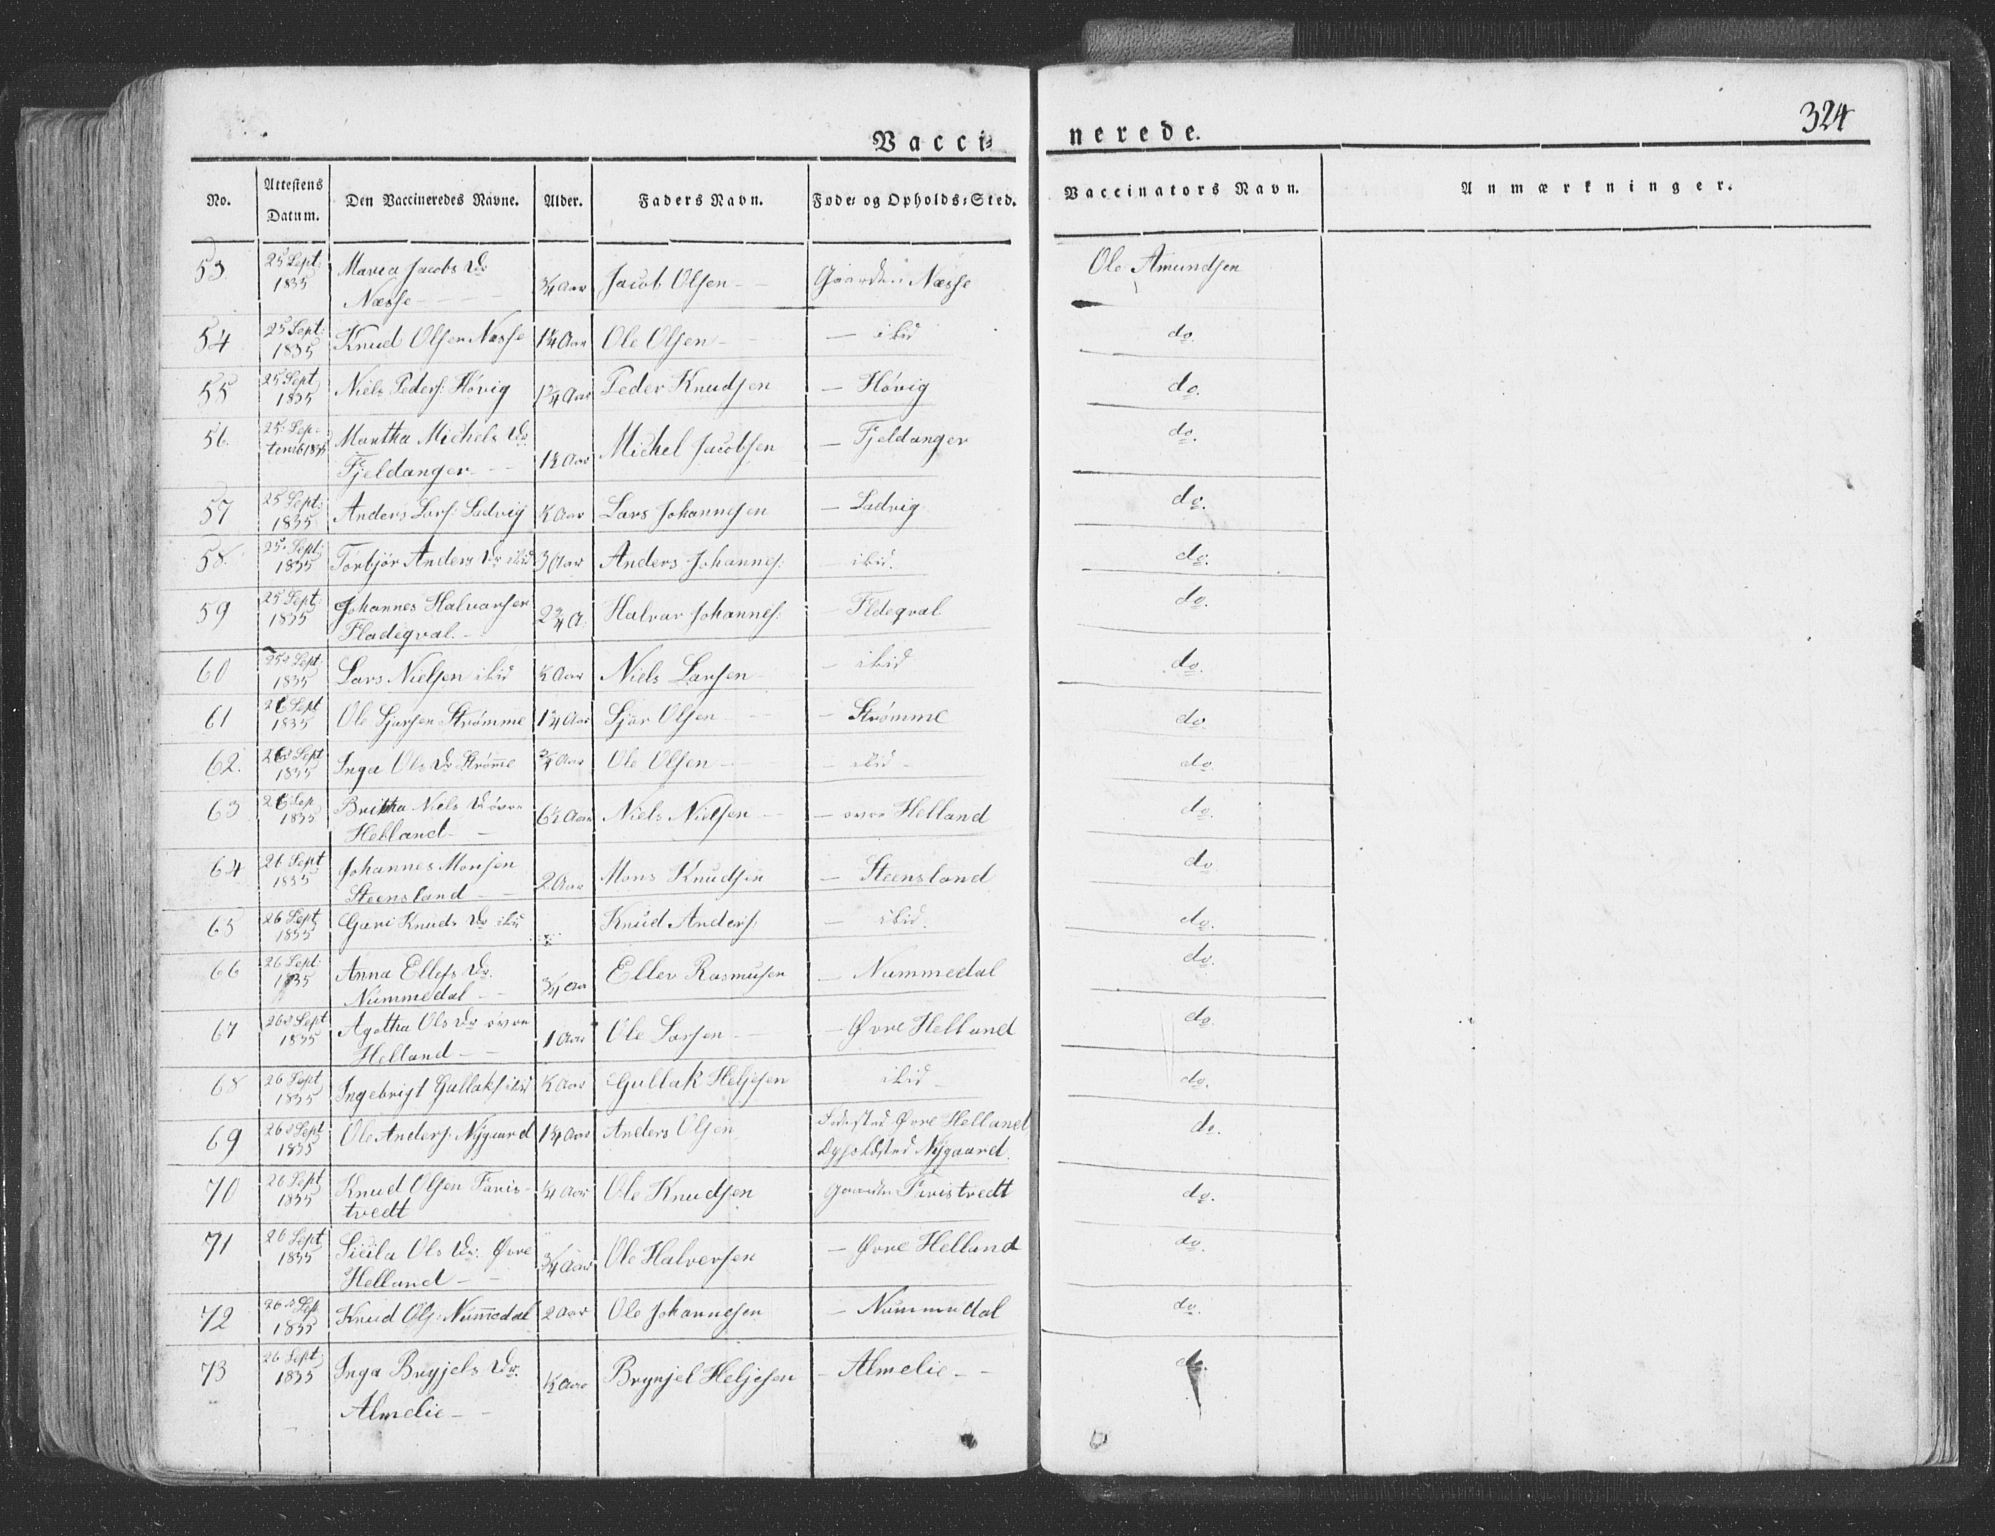 324
Vacci⸗ nerede.
No. Attestens Datum. Den Vaccineredes Navne. Alder. Faders Navn. Føde⸗ og Opholds⸗Sted. Vaccinators Navn. Anmærkninger.
53 25 Sept 1835 Maria Jacobs Dr Næsse 3/4 Aar Jacob Olsen Gaarden Næsse Ole Amundsen
54 25 Sept: 1835 Knud Olsen Næsse 1 1/4 Aar Ole Olsen — ibid do.
55 25 Sept 1835 Niels Peders: Høvig 1 1/4 Aar Peder Knudsen — Høvig do.
56. 25 Septemb 1835 Martha Michels Dr Fjeldanger 1 1/2 Aar Michel Jacobsen — Fjeldanger do.
57 25 Sept: 1835 Anders Lars: Ladvig 1/2 Aar Lars Johannesen — Ladvig do.
58. 25 Sept: 1835 Torbjør Anders Dr ibid 3 Aar Anders Johannes: — ibid. do.
59 25 Sept 1835 Johannes Halvarsen Fladeqval 2 3/4 A. Halvar Johannes: — Fldeqval do.
60 25 Sept: 1835 Lars Nielsen ibid 1/2 Aar Niels Larsen — ibid do.
61 26 Sept 1835 Ole Sjursen Strømme 1 3/4 Aar Sjur Olsen — Strømme do.
62. 26 Sept 1835 Inga Ols Dr Strøme 3/4 Aar Ole Olsen — ibid — do.
63 26 Sep 1835 Britha Niels Dr øvre Helland 6 1/2 Aar Niels Nielsen — øvre Helland do.
64 26 Sept 1835 Johannes Monsen Steensland 2 Aar Mons Knudsen — Steensland do
65 26 Sept 1835 Guri Knuds Dr ibid Knud Anders: — ibid. do.
66 26 Sept: 1835 Anna Ellefs Dr. Nummedal 3/4 Aar Ellev Rasmusen — Nummedal do.
67 26 Sept 1835 Agotha Ols Dr øvre Helland 1 Aar Ole Larsen — Øvre Helland do.
68 26 Sept 1835 Ingebrigt Gullaks: ibid 1/2 Aar Gullak Heljesen ibid do.
69 26 Sept 1835 Ole Anders: Nÿgaard 1 1/4 Aar Anders Olsen Fødested Øvre Helland Opholdsted Nÿgaard. do.
70 26 Sept 1835 Knud Olsen Faris-tvedt 1/4 Aar Ole Knudsen Gaarden Firistvedt do.
71 26 Sept 1835 Ols Dr: Øvre Helland 3/4 Aar Ole Halversen — Øvre Helland do.
72 26 Sep 1835 Knud Ols: Nummedal 2 Aar Ole Johannesen — Nummedal do.
73 26 Sept: 1835 Inga Bryjels Dr. Almelie 1/2 Aar Brynjel Heljesen — Almelie do.